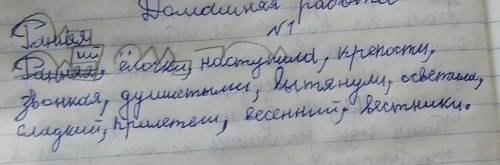 Домашняя работа
№1
Ранняя
ий
Ранняя, ёлочки, наступила, крепости,
звонкая, душистыми, вытянули, осветила,
сладкий, прилетели, весенний, вестники.